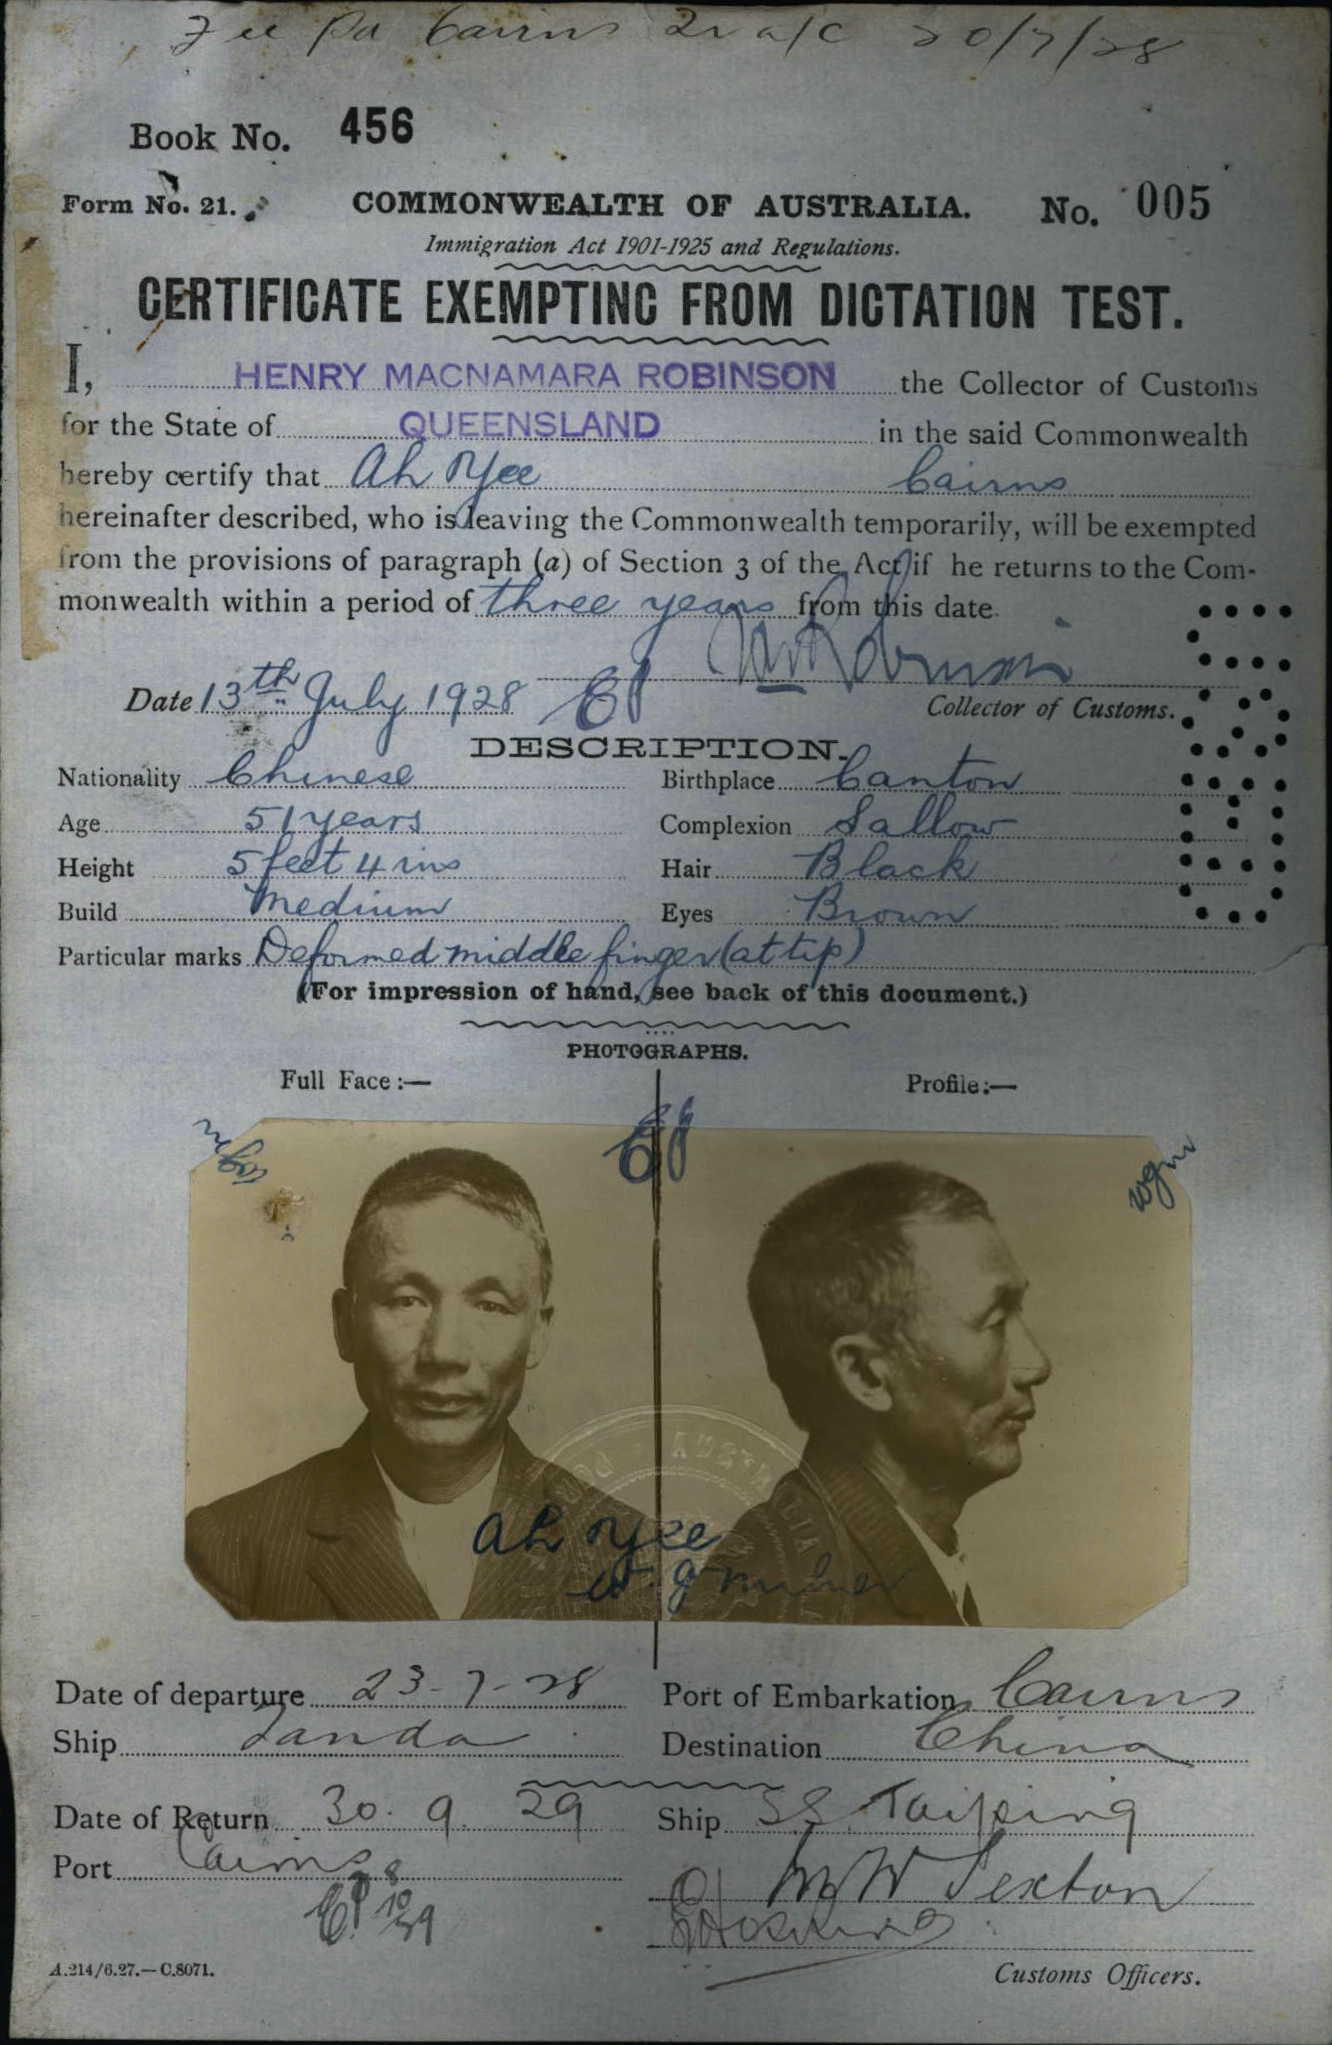 Fee pd Cairns 2nd a/c 20/7/28
Book No. 456
Form No. 21. COMMONWEALTH OF AUSTRALIA. No. 005
Immigration Act 1901-1925 and Regulations.
CERTIFICATE EXEMPTING FROM DICTATION TEST.
I, HENRY MACNAMARA ROBINSON the Collector of Customs
for the State of QUEENSLAND in the said Commonwealth
hereby certify that Ah Yee Cairns
hereinafter described, who is leaving the Commonwealth temporarily, will be exempted
from the provisions of paragraph (a) of Section 3 of the Act if he returns to the Com-
monwealth within a period of three years from this date.
Date 13th July 1928 Collector of Customs.
DESCRIPTION.
Nationality Chinese Birthplace Canton
Age 51 years Complexion Sallow
Height 5 feet 4 ins Hair Black
Build Medium Eyes Brown
Particular marks Deformed middle finger (at tip)
(For impression of hand, see back of this document.)
PHOTOGRAPHS.
Full Face:— Profile:—
wgm wgm
Ah Yee
Date of departure 23-7-28 Port of Embarkation Cairns
Ship Tanda Destination China
Date of Return 30.9.29 Ship SS Taiping
Port Cairns W Sexton
A.214/6.27.—C.8071. Customs Officers.